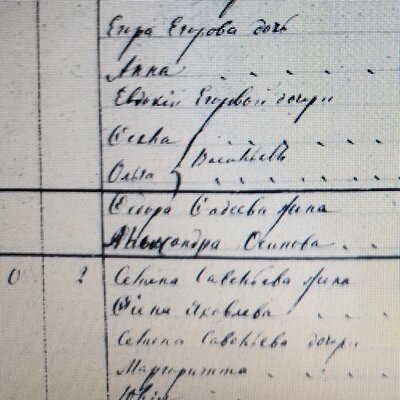 Егора Егорова дочь
Анна
Евдокіи Егоровой дочери
Елена
Ольга } Васильевы
Федора Савеева жена
Александра Осипова
0 2 Семена Савельева жена
Елена Яковлева
Семена Савельева дочери
Маргаритта